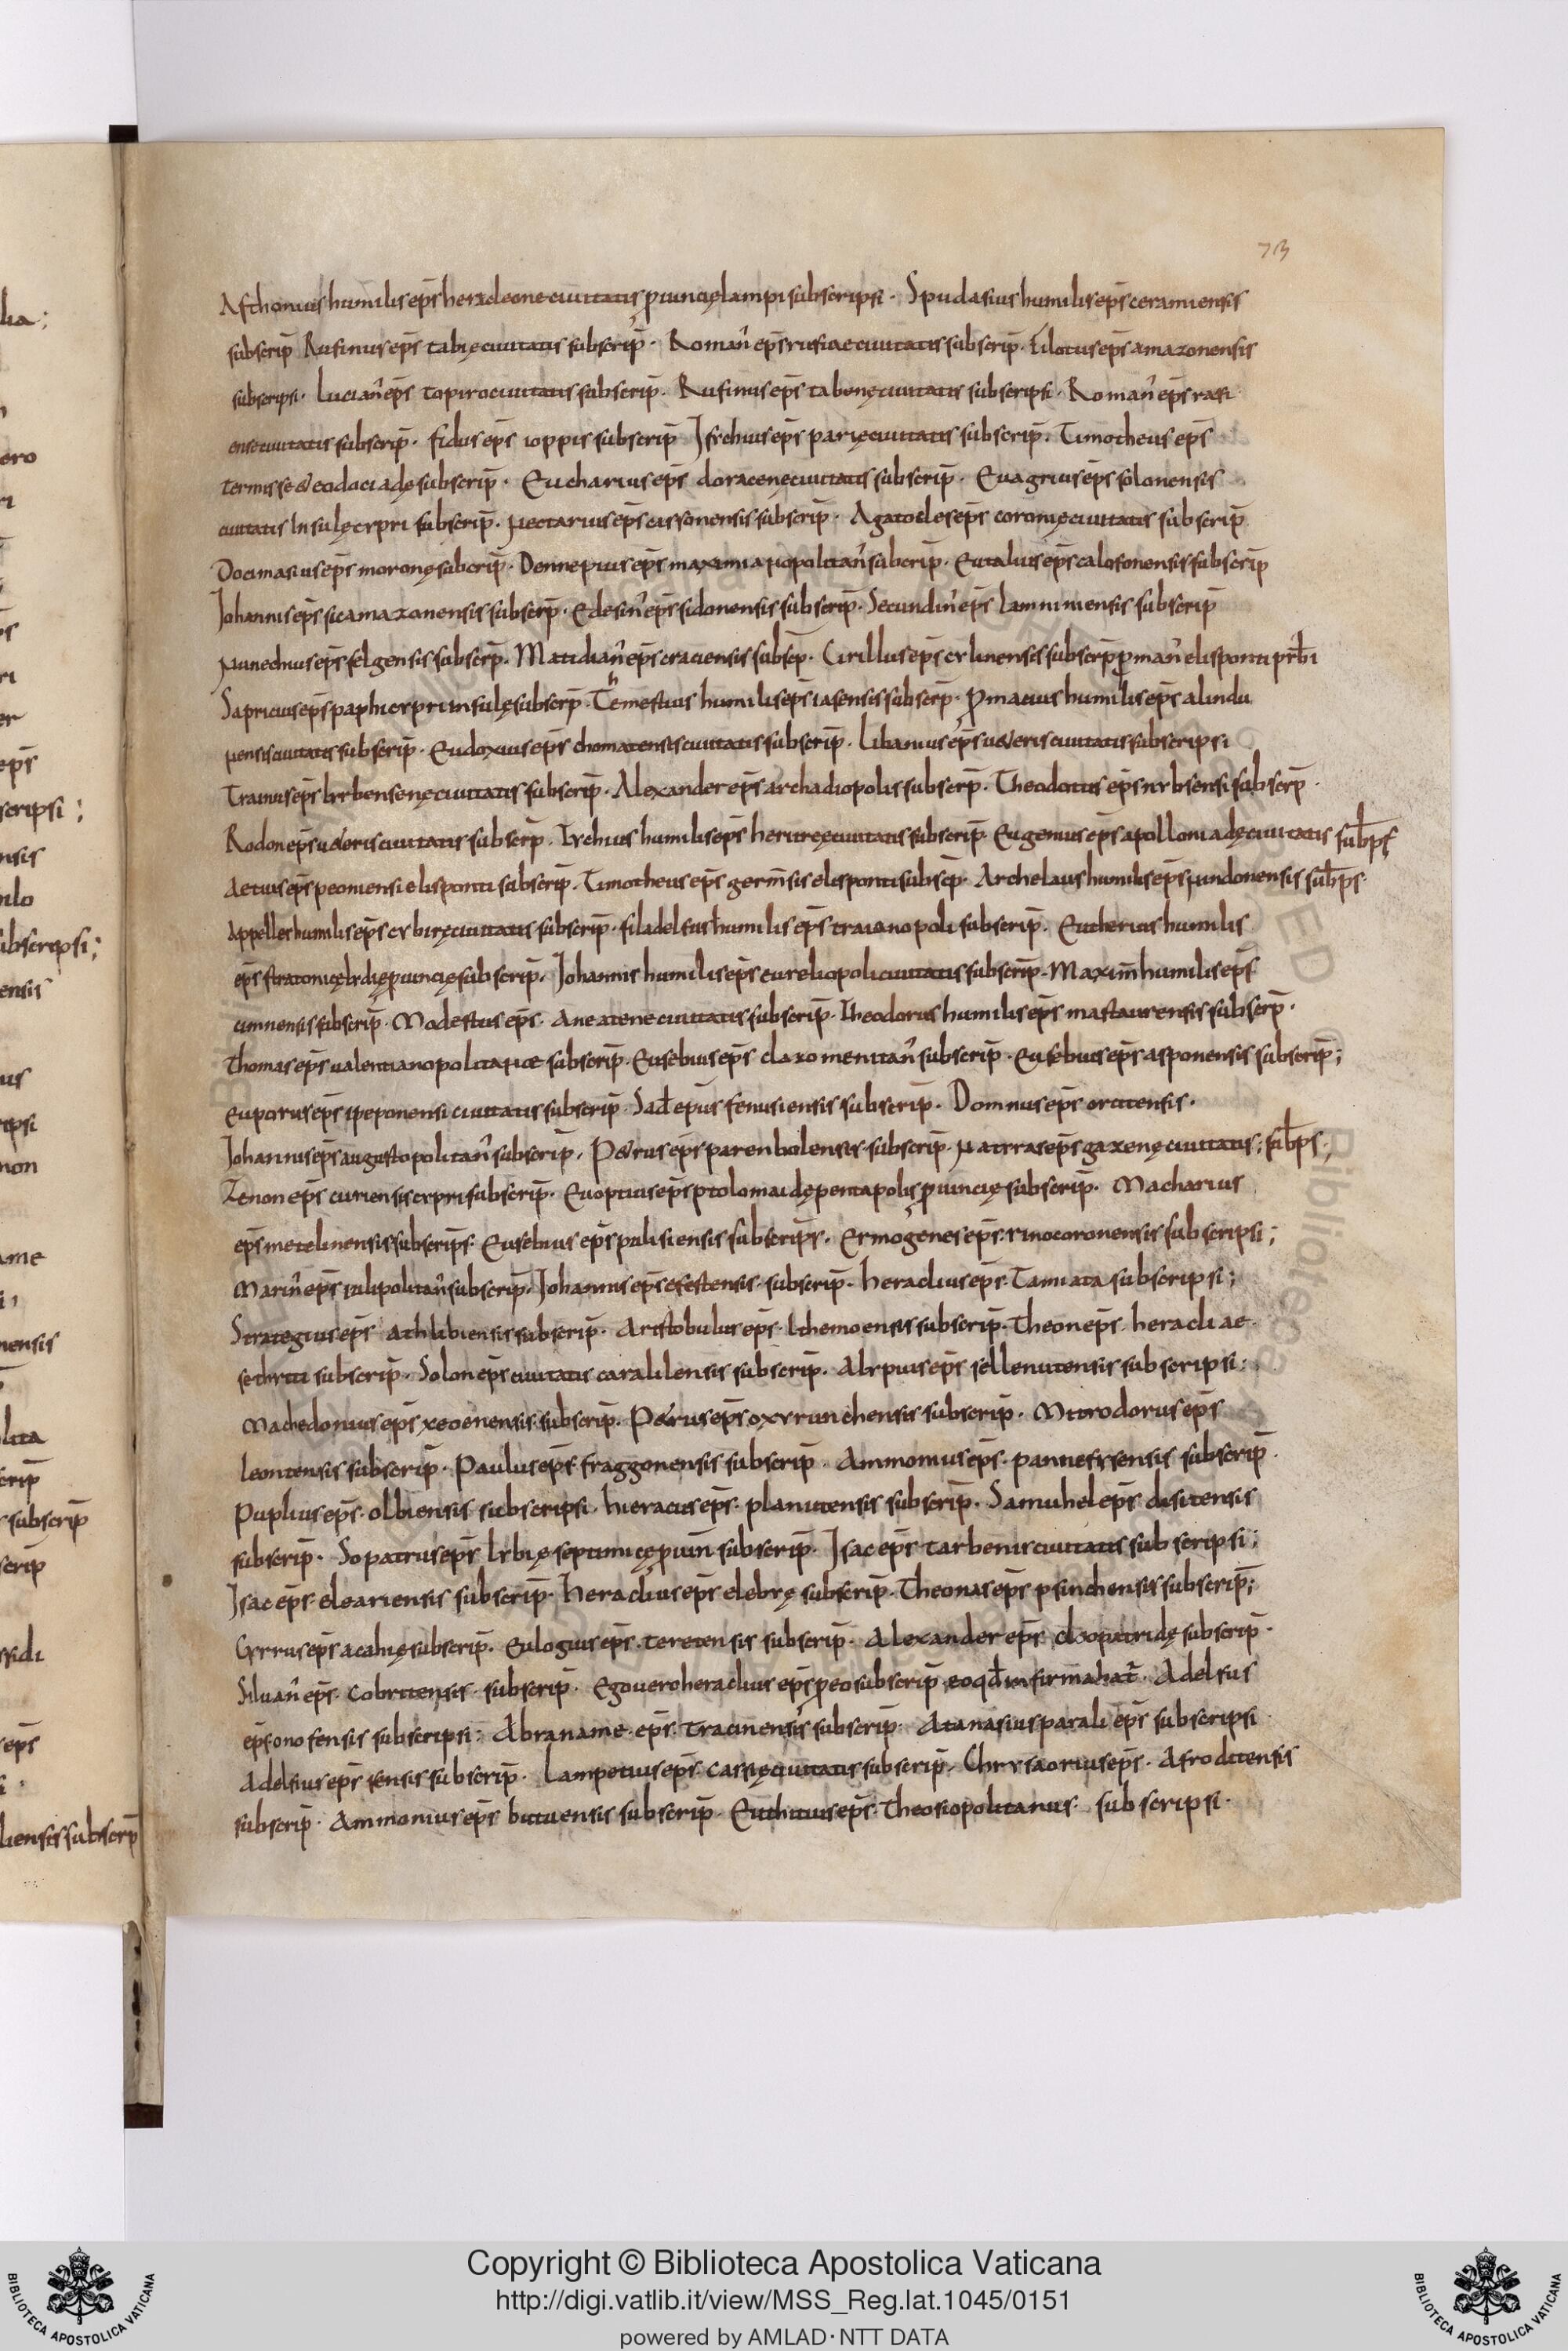 73
Afthonius humilis ep̅s heracleone ciuitatis ꝓuincię lampi subscripsi · Spudasius humilis ep̅s ceramiensis
subscrip̅ Rufinus ep̅s tabię ciuitatis subscrip̅ · Roman̉ ep̅s rufiae ciuitatis subscrip̅ · filotus ep̅s amazonensis
subscripsi · Lucian̉ ep̅s topiro ciuitatis subscrip̅ · Rufinus ep̅s tabenę ciuitatis subscripsi · Roman̉ ep̅s rafi
ense ciuitatis subscrip̅ · fidus ep̅s ioppis subscrip̅ Isechius ep̅s parię ciuitatis subscrip̅ · Timotheus ep̅s
termisse & eodociadę subscrip̅ · Eucharius ep̅s doracenę ciuitatis subscrip̅ · Euagrius ep̅s solonensis
ciuitatis Insulę cypri subscrip̅ · Nectarius ep̅s cassonensis subscrip̅ · Agatocles ep̅s coronię ciuitatis subscrip̅
Docimasius ep̅s moronę subcrip̅ · Dennepius ep̅s maximianopolitan̉ subcrip̅ · Eutalius ep̅s calofonensis subscrip̅
Johannis ep̅s sicamazonensis subscrp̅ · Edesin̉ ep̅s sidonensis subscrip̅ · Secundin̉ ep̅s Lamniensis subscrip̅
Nunechius ep̅s selgensis subscrp̅ · Matidian̉ ep̅s craciensis subscp̅ · Cirillus ep̅s cylinensis subscrp̅ ꝑ man̉ elisponti prb̅i
Sapricius ep̅s paphi cypri insulę subscrp̅ · Themestius humilis ep̅s iasensis subscrp̅ · Promacius humilis ep̅s alindu
nensis ciuitatis subscrip̅ · Eudoxius ep̅s chomatensis ciuitatis subscrip̅ · Libanius ep̅s u&eris ciuitatis subscripsi
Trainus ep̅s lyrbensenę ciuitatis subscrip̅ · Alexander ep̅s archadiopolis subscrp̅ · Theodotus ep̅s nybsensi subscrp̅ ·
Rodon ep̅s u&eris ciuitatis subscrp̅ · Iychius humilis ep̅s heritreę ciuitatis subscrip̅ · Eugenius ep̅s apolloniadę ciuitatis sub̅ps
Aetius ep̅s peoniensi elisponti subscrip̅ · Timotheus ep̅s germ̅sis elisponti subscp̅ · Archelaus humilis ep̅s mindonensis sub̅ps ·
Appelles humilis ep̅s cybirę ciuitatis subscrip̅ · filadelfus humilis ep̅s traianopoli subscrip̅ · Eutherius humilis
ep̅s stratonicę lydię ꝓuincię subscrip̅ · Johannis humilis ep̅s eureliopoli ciuitatis subscrip̅ · Maxim̅ humilis ep̅s
cumnensis subscrip̅ · Modestus ep̅s · aneatene ciuitatis subscrip̅ · theodorus humilis ep̅s mastaurensis subscrp̅ ·
Thomas ep̅s ualentianopolitanae subscrip̅ · Eusebius ep̅s clazomenitan̉ subscrip̅ · Eusebius ep̅s asponensis subscrip̅ ;
Euporus ep̅s ipeponensi ciuitatis subscrip̅ · Sad̅ epi̅s fenusiensis subscrip̅ · Domnus ep̅s orcitensis ·
Johannis ep̅s augustopolitan̉ subscrip̅ · P&rus ep̅s parenbolensis subscrip̅ · Natiras ep̅s gazenę ciuitatis ; sub̅ps ·
Zenon ep̅s curiensis cypri subscrip̅ · Euoptius ep̅s ptolomaidę pentapolis ꝓuincię subscrip̅ · Macharius
ep̅s metelinensis subscrip̅s · Eusebius ep̅s pulisiensis subscrip̅s · Ermogenes ep̅s rinocoronensis subscripsi ;
Marin̉ ep̅s iulipolitan̉ subscrip̅ · Johannis ep̅s efestensis subscrip̅ · heraclius ep̅s · Tamiata subscripsi ;
Strategius ep̅s athlibiensis subscrip̅ · Aristobulus ep̅s · Ithemoensis subscrip̅ · Theon ep̅s heracliae
sethriti subscrip̅ · Solon ep̅s ciuitatis caralilensis subscrip̅ · Alypius ep̅s sellenitensis subscripsi ;
Machedonius ep̅s xeoenensis subscrip̅ · P&rus ep̅s oxyrunchensis subscrip̅ · Mitrodorus ep̅s
leontensis subscrip̅ · Paulus ep̅s fraggonensis subscrip̅ · Ammonius ep̅s · pannefysensis subscrip̅ ·
Puplius ep̅s · olbiensis subscripsi · hieracus ep̅s · planitensis subscrip̅ · Samuhel ep̅s disitensis
subscrip̅ · Sopatrus ep̅s lybię septimicę ꝓuin̅ subscrip̅ · Isac ep̅s tarbenis ciuitatis subscripsi ;
Isac ep̅s eleariensis subscrip̅ · Heraclius ep̅s elebrę subscrip̅ · Theonas ep̅s psinchensis subscrip̅ ;
Cyrrus ep̅s acahię subscrip̅ · Eulogius ep̅s · teretensis subscrip̅ · Alexander ep̅s cleopatridę subscrip̅ ·
Siluan̉ ep̅s · cobritensis · subscrip̅ · Ego uero heraclius ep̅s ꝑ eo subscrip̅ eo qd̅ infirmabat̉ · Adelfius
ep̅s onofensis subscripsi ; Abraname · ep̅s · tracinensis subscrip̅ · Atanasius parali ep̅s subscripsi
Adelfius ep̅s sensis subscrip̅ · Lampetius ep̅s cassię ciuitatis subscrip̅ · Chrysaorius ep̅s · Afroditensis
subscrip̅ · Ammonius ep̅s butuensis subscrip̅ · Euthitius ep̅s Theosiopolitanus · subscripsi ·
Copyright © Biblioteca Apostolica Vaticana
http://digi.vatlib.it/view/MSS_Reg.lat.1045/0151
powered by AMLAD·NTT DATA
BIBLIOTECA APOSTOLICA VATICANA
BIBLIOTECA APOSTOLICA VATICANA